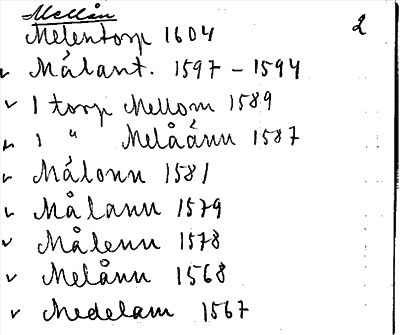 Mellån
2
Melentorp 1604
Målant. 1597 - 1594
1 torp Mellom 1589
1 " Melåånn 1587
Målonn 1581
Målann 1579
Målenn 1578
Melånn 1568
Medelam 1567